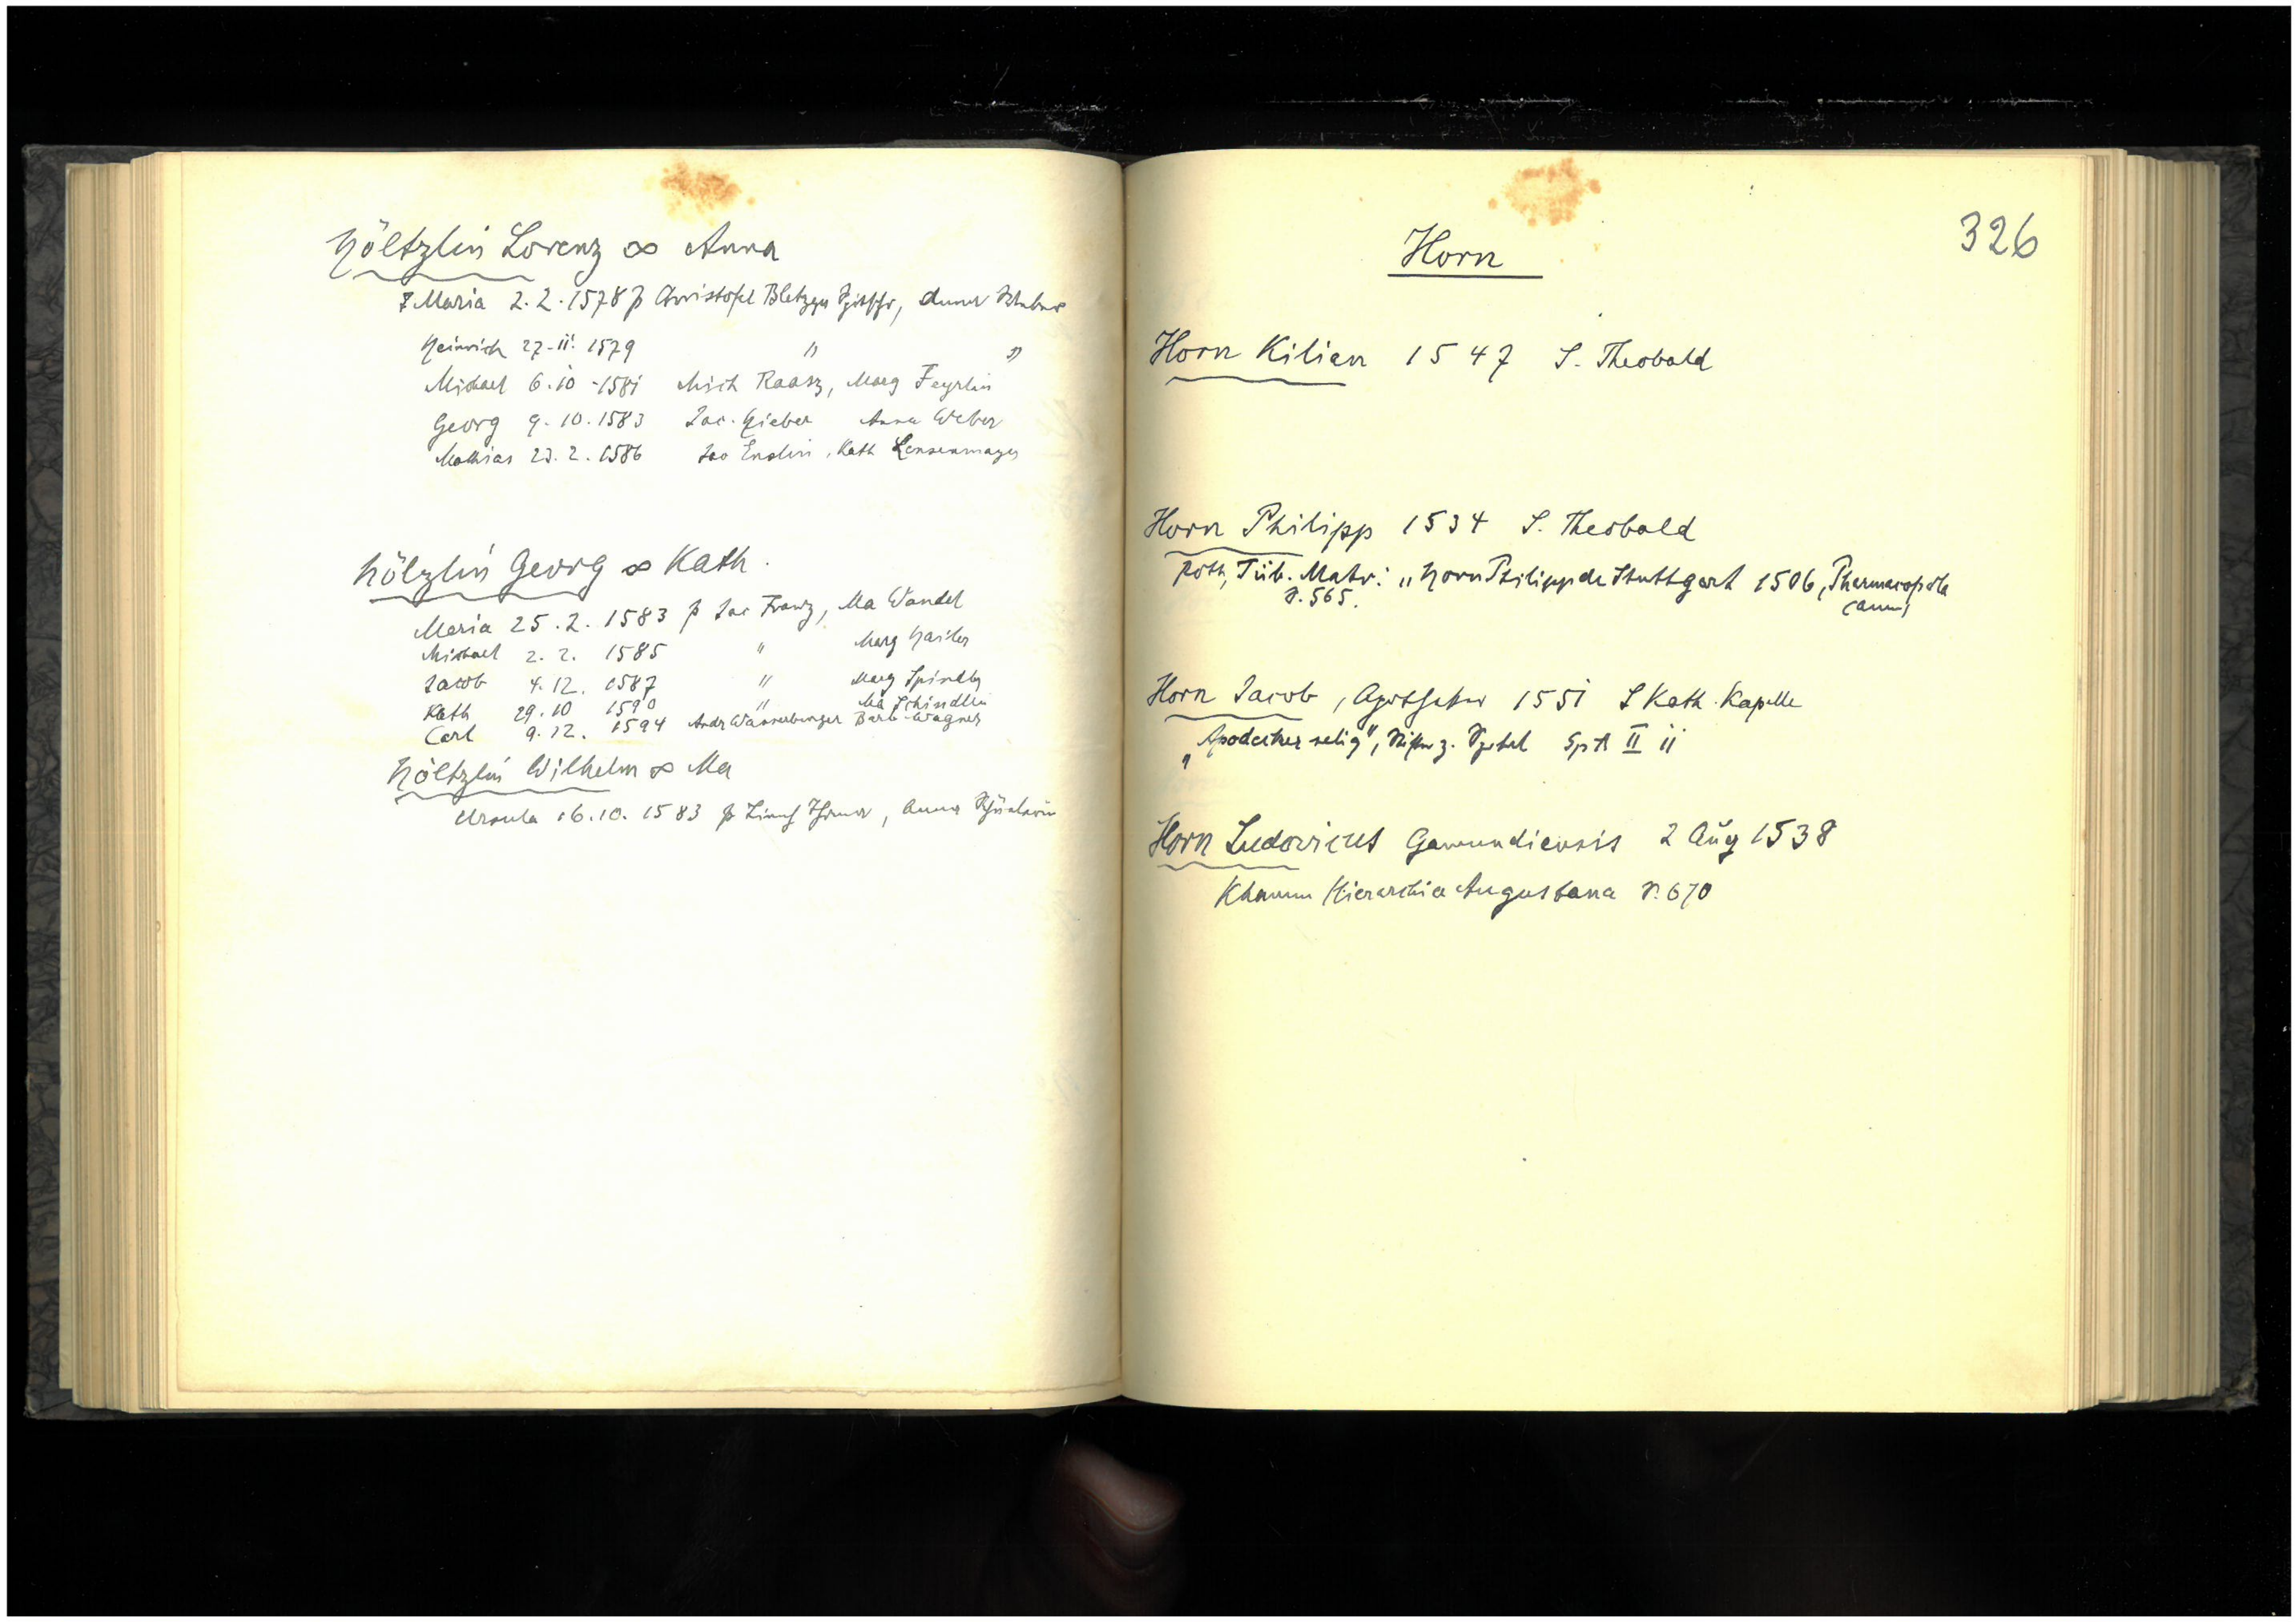 Höltzlin Lorenz ∞ Anna
Maria 2.2.1578 p Christofel Bletzger
Heinrich 27-ii. 1579 " "
Michael 6.10-1581 Mich Raasz, Marg Feyrlin
Georg 9.10.1583 Jac. Hieber Anna Weber
Mathias 23.2.1586 Jac Enslin, Kath Lensenmayer
Hölzlin Georg ∞ Kath.
Maria 25.2.1583 p Jac Franz, Ma Wandel
Michael 2.2. 1585 " Marg Hailer
Jacob 4.12. 1587 " Marg Spindler
Kath 29.10 1590 " Ma Schindlin
Carl 9.12. 1594 Andr Wasserburger Barb Wagner
Höltzlin Wilhelm ∞ Ma
Ursula 16.10. 1583 p
326
Horn
Horn Kilian 1547 S. Theobald
Horn Philipp 1534 S. Theobald
Roth, Tüb. Matr: „Horn Philipp de Stuttgart 1506, Pharmacopola
S. 565.
Horn Jacob, Apotheker 1551 S Kath. Kapelle
„Apodecker selig", Stifter z. Spital SpA II ii
Horn Ludovicus Gamundiensis 2 Aug 1538
Khamm Hierarchia Augustana S. 670